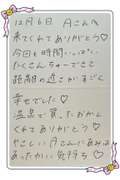 12月6日 Aさんへ
来てくれてありがとう♡
今回も時間いっぱい
たくさんちゅーできて
距離の近さがすごく
幸せでした♡
温品で買ったおかし
くれてありがとう♡
やさしいAさんにあれば
あったかい気持ち♡